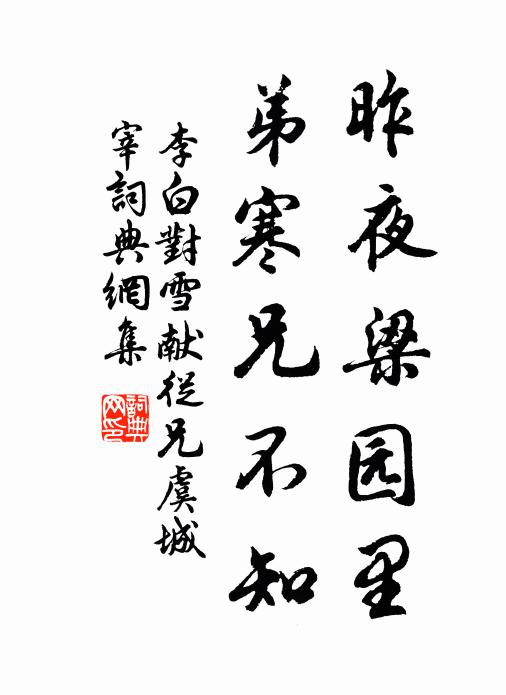 昨夜梁园里
弟寒兄不知
李白對雪献從兄虞城
宰詞典網集
詞典网印